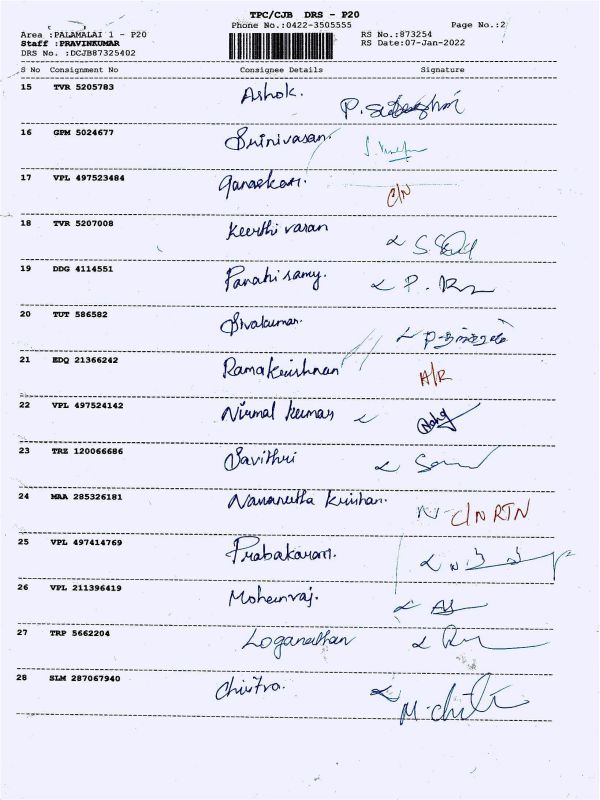 TPC/CJB DRS - P20
Phone No.:0422-3505555 Page No.:2
Area :PALAMALAI 1 - P20 RS No.:873254
Staff :PRAVINKUMAR RS Date:07-Jan-2022
DRS No. :DCJB87325402
S No Consignment No Consignee Details Signature
15 TVR 5205783 Ashok.
16 GPM 5024677 Srinivasan.
17 VPL 497523484 C/N
18 TVR 5207008 Keerthi varan
19 DDG 4114551
20 TUT 586582 Sivakumar.
21 EDQ 21366242 Ramakrishnan A/R
22 VPL 497524142 Nirmal kumar
23 TRZ 120066686 Savithri
24 MAA 285326181 C/N RTN
25 VPL 497414769 Prabakaran.
26 VPL 211396419 Mohanraj.
27 TRP 5662204 Loganathan
28 SLM 287067940 Chitra.